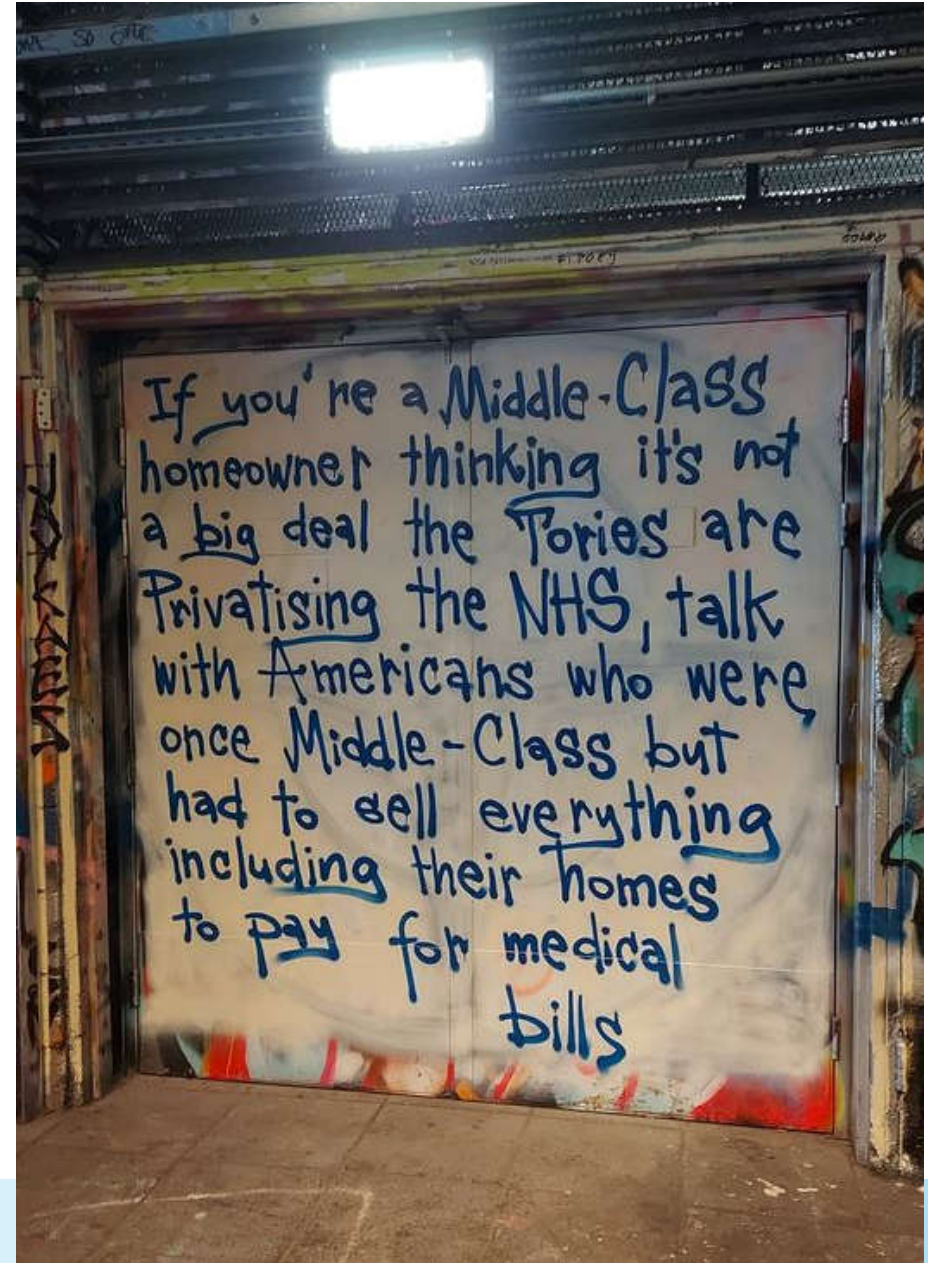 If you're a Middle-Class
homeowner thinking it's not
a big deal the Tories are
Privatising the NHS, talk
with Americans who were,
once Middle-Class but
had to sell everything
including their homes
to pay for medical
bills